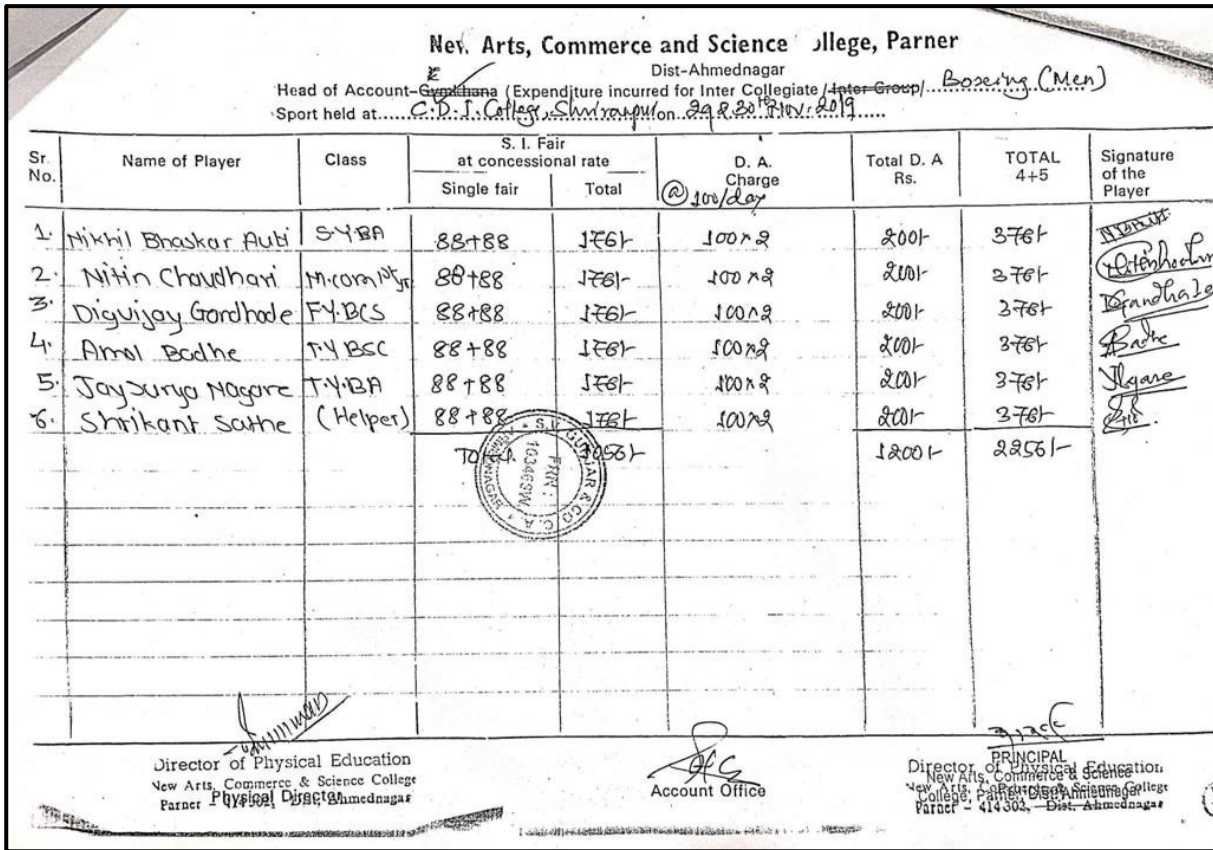 New Arts, Commerce and Science College, Parner
Dist-Ahmednagar
Head of Account-Gymkhana (Expenditure incurred for Inter Collegiate / Inter Group/ Boxing (Men)
Sport held at C.D.J. College, Shrirampur on 29 & 30th Nov. 2019
Sr. No. Name of Player Class S. I. Fair at concessional rate Single fair Total D. A. Charge @ 100/day Total D. A Rs. TOTAL 4+5 Signature of the Player
1. Nikhil Bhaskar Auti S.Y.BA 88+88 176/- 100×2 200/- 376/-
2. Nitin Chaudhari M.com 1st yr 88+88 176/- 100×2 200/- 376/-
3. Digvijay Gandhade F.Y.BCS 88+88 176/- 100×2 200/- 376/-
4. Amol Badhe T.Y BSC 88+88 176/- 100×2 200/- 376/- Badhe
5. Jaysurya Nagare T.Y.BA 88+88 176/- 100×2 200/- 376/-
6. Shrikant Sathe (Helper) 88+88 176/- 100×2 200/- 376/-
Total 1056/- 1200/- 2256/-
GUJAR & CO. C.A. FRN:
Director of Physical Education
New Arts, Commerce & Science College
Parner Physical Director Ahmednagar
Account Office
PRINCIPAL
Director of Physical Education
New Arts, Commerce & Science
College, Parner, Dist. Ahmednagar
New Arts, Science College
Parner - 414302, Dist, Ahmednagar